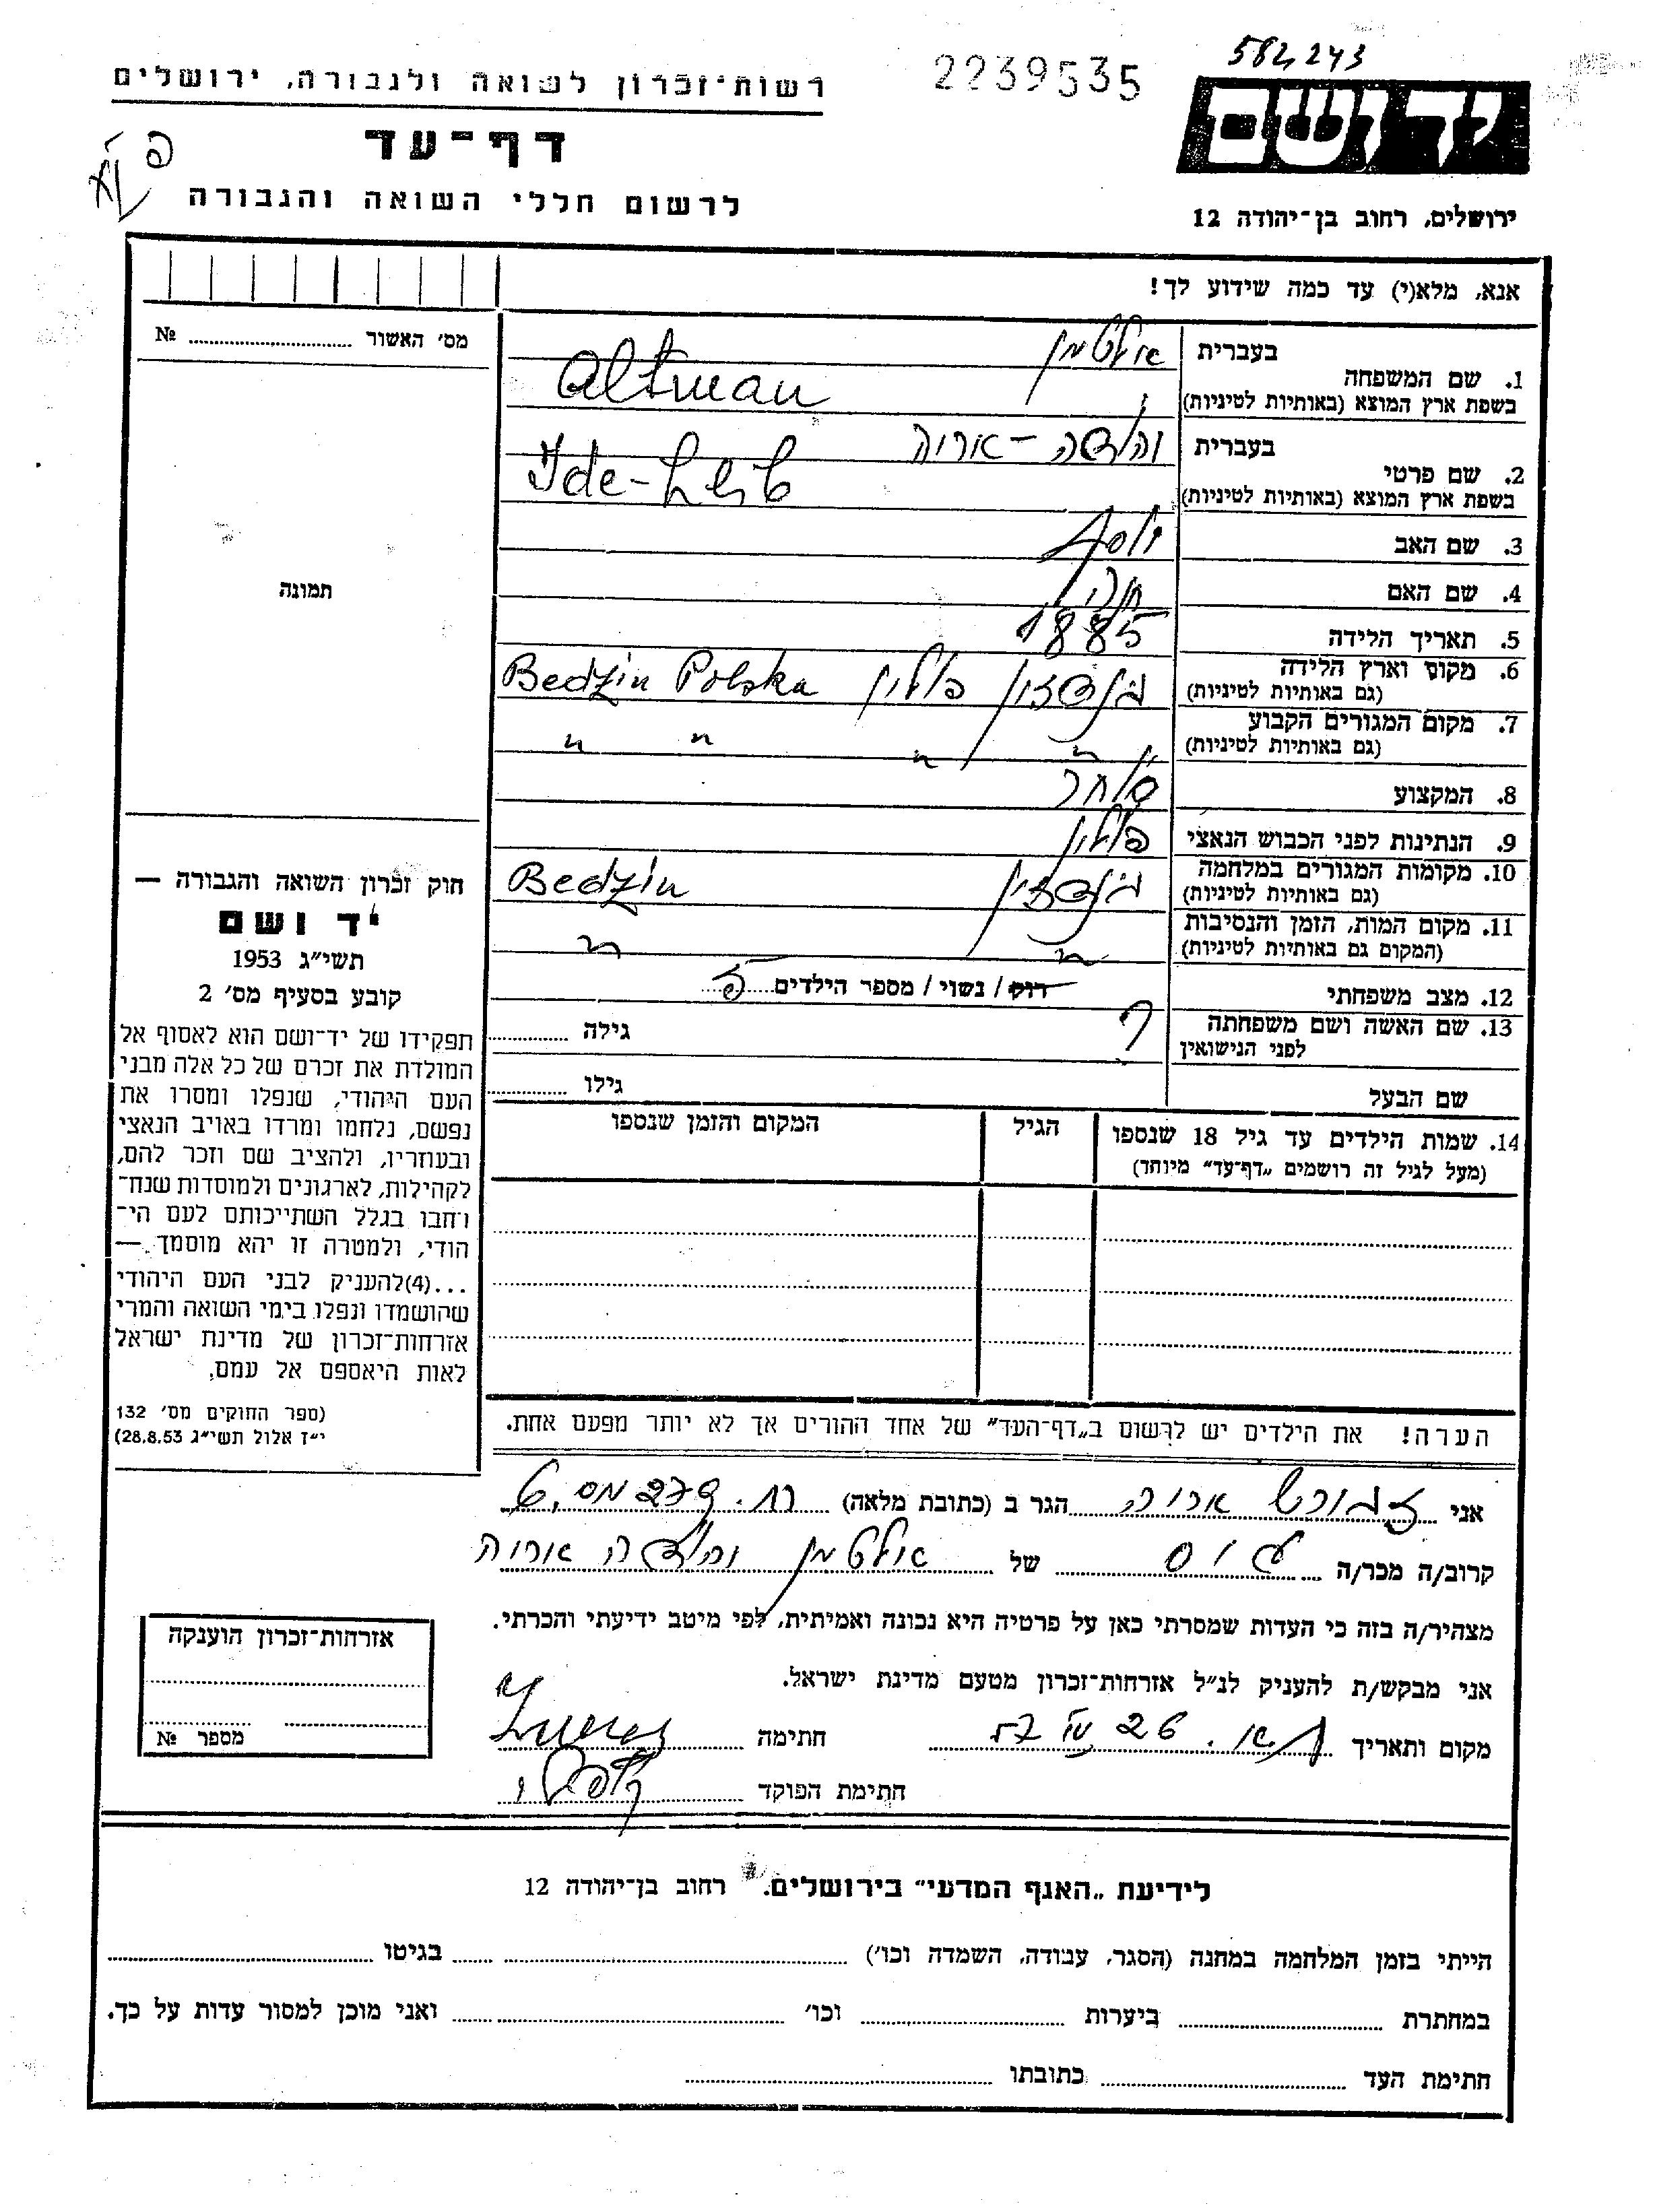 582,243
2239535
יד ושם
רשות־זכרון לשואה ולגבורה, ירושלים
דף־עד
לרשום חללי השואה והגבורה
ירושלים, רחוב בן־יהודה 12
אנא, מלא(י) עד כמה שידוע לך!
מס׳ האשור № 
1. שם המשפחה בעברית אלטמן
בשפת ארץ המוצא (באותיות לטיניות) Altman
2. שם פרטי בעברית יהודה-אריה
בשפת ארץ המוצא (באותיות לטיניות) Ide-
3. שם האב יוסף
4. שם האם חנה
5. תאריך הלידה 1885
6. מקום וארץ הלידה בנדזין פולין Bedzin Polska
(גם באותיות לטיניות)
7. מקום המגורים הקבוע " " " "
(גם באותיות לטיניות)
8. המקצוע סוחר
9. הנתינות לפני הכבוש הנאצי פולין
10. מקומות המגורים במלחמה בנדזין Bedzin
(גם באותיות לטיניות)
11. מקום המות, הזמן והנסיבות " "
(המקום גם באותיות לטיניות)
12. מצב משפחתי רווק / נשוי / מספר הילדים
13. שם האשה ושם משפחתה ? גילה
לפני הנישואין
שם הבעל גילו
14. שמות הילדים עד גיל 18 שנספו הגיל המקום והזמן שנספו
(מעל לגיל זה רושמים „דף־עד״ מיוחד)
הערה! את הילדים יש לרשום ב„דף־העד״ של אחד ההורים אך לא יותר מפעם אחת.
תמונה
חוק זכרון השואה והגבורה —
יד ושם
תשי״ג 1953
קובע בסעיף מס׳ 2
תפקידו של יד־ושם הוא לאסוף אל
המולדת את זכרם של כל אלה מבני
העם היהודי, שנפלו ומסרו את
נפשם, נלחמו ומרדו באויב הנאצי
ובעוזריו, ולהציב שם וזכר להם,
לקהילות, לארגונים ולמוסדות שנח־
רחבו בגלל השתייכותם לעם הי־
הודי, ולמטרה זו יהא מוסמך —
...(4)להעניק לבני העם היהודי
שהושמדו ונפלו בימי השואה והמרי
אזרחות־זכרון של מדינת ישראל
לאות היאספם אל עמם.
(ספר החוקים מס׳ 132
י״ז אלול תשי״ג 28.8.53)
אני אריה הגר ב (כתובת מלאה) רח. מס. 6
קרוב/ה מכר/ה גיס של אלטמן יהודה אריה
מצהיר/ה בזה כי העדות שמסרתי כאן על פרטיה היא נכונה ואמיתית, לפי מיטב ידיעתי והכרתי.
אני מבקש/ת להעניק לנ״ל אזרחות־זכרון מטעם מדינת ישראל.
מקום ותאריך חתימה
חתימת הפוקד
אזרחות־זכרון הוענקה
מספר №
לידיעת „האגף המדעי״ בירושלים. רחוב בן־יהודה 12
הייתי בזמן המלחמה במחנה (הסגר, עבודה, השמדה וכו׳) בגיטו
במחתרת ביערות וכו׳ ואני מוכן למסור עדות על כך.
חתימת העד כתובתו